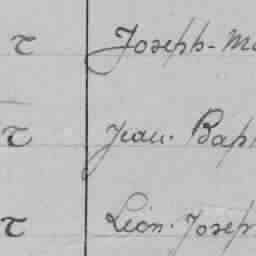 τ Joseph-Ma
τ Jean. Bap
τ Léon. Josep